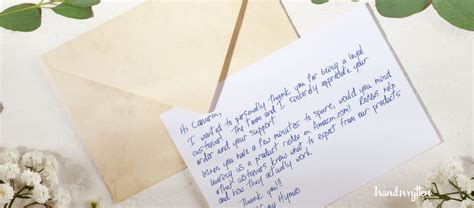 Hi Cameron,
I wanted to personally thank you for being a loyal
customer! The team and I sincerely appreciate your
order and your support.
When you have a few minutes to spare, would you mind
leaving us a product review on Amazon.com? Reviews help
other customers know what to expect from our products
and how they actually work.
Thank you!
Hymes
handwrytten